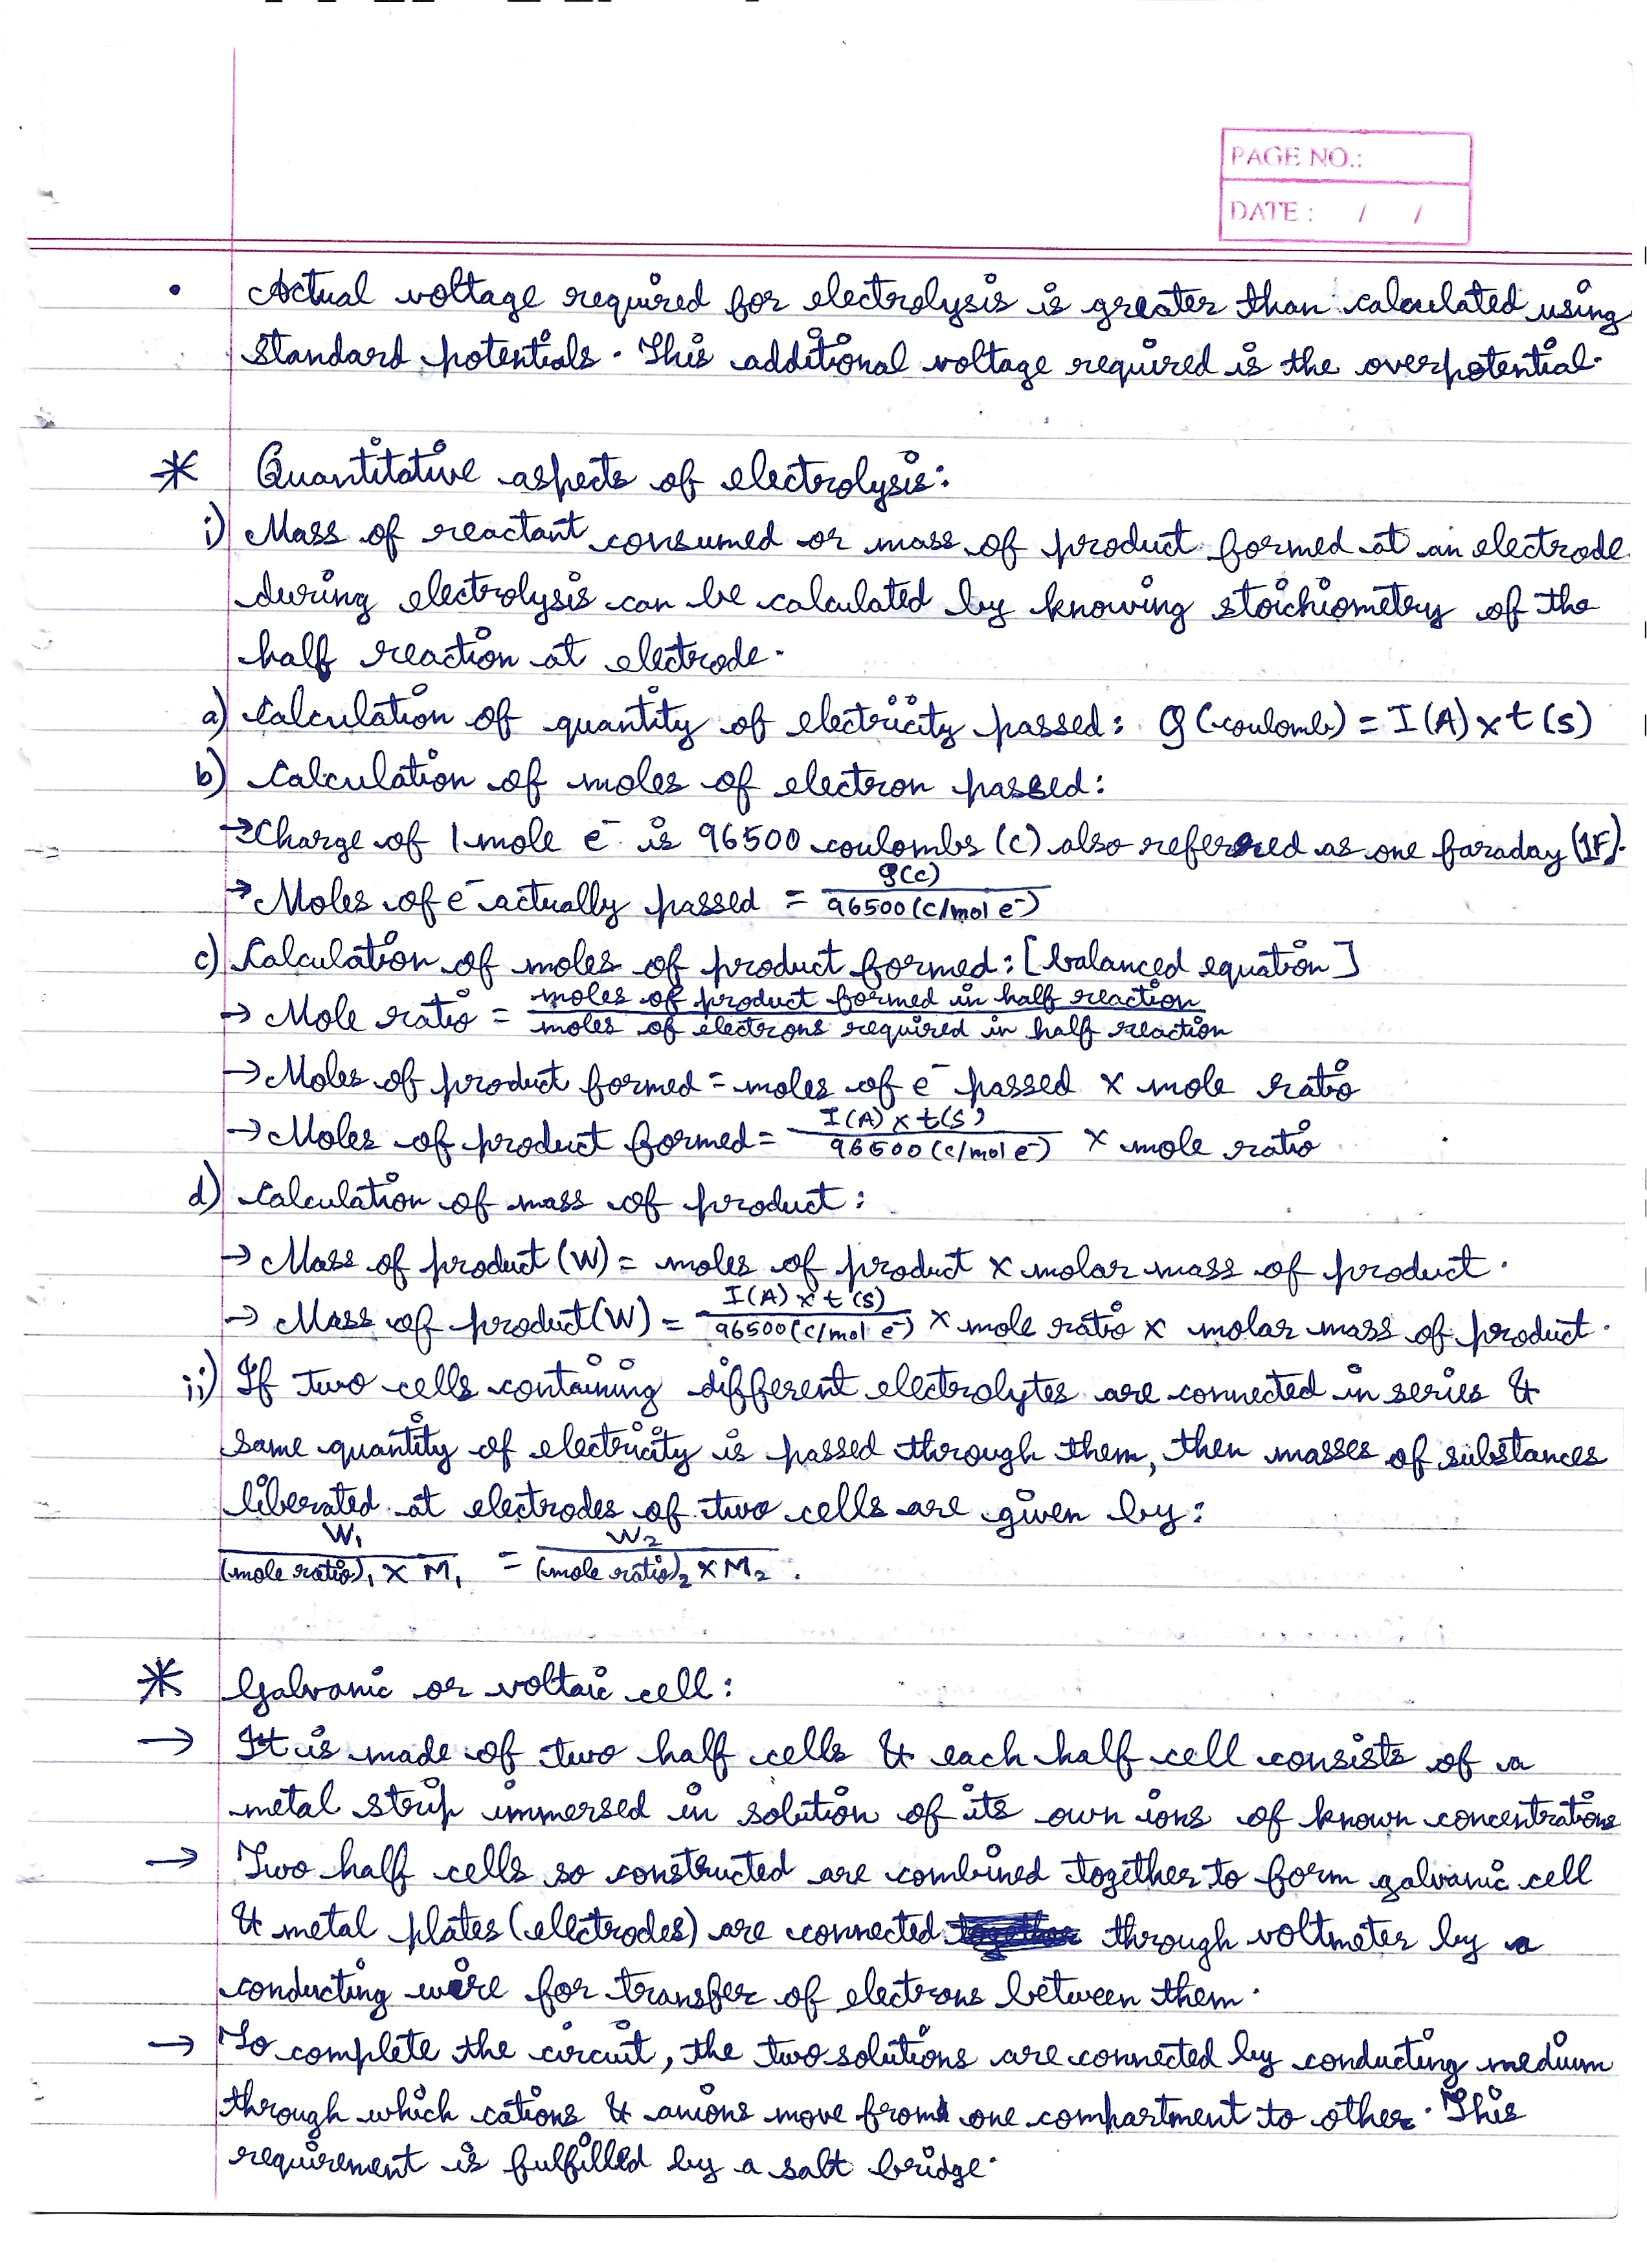 PAGE NO.:
DATE : / /
• Actual voltage required for electrolysis is greater than calculated using
standard potentials. This additional voltage required is the overpotential.
* Quantitative aspects of electrolysis:
i) Mass of reactant consumed or mass of product formed at an electrode
during electrolysis can be calculated by knowing stoichiometry of the
half reaction at electrode.
a) Calculation of quantity of electricity passed: Q (coulomb) = I (A) x t (s)
b) Calculation of moles of electron passed:
→ Charge of 1 mole e⁻ is 96500 coulombs (C) also referred as one faraday (1F).
→ Moles of e⁻ actually passed = Q(C) / 96500 (C/mol e⁻)
c) Calculation of moles of product formed: [balanced equation]
→ Mole ratio = moles of product formed in half reaction / moles of electrons required in half reaction
→ Moles of product formed = moles of e⁻ passed x mole ratio
→ Moles of product formed = I (A) x t (s) / 96500 (C/mol e⁻) x mole ratio
d) Calculation of mass of product:
→ Mass of product (W) = moles of product x molar mass of product.
→ Mass of product (W) = I (A) x t (s) / 96500 (C/mol e⁻) x mole ratio x molar mass of product.
ii) If two cells containing different electrolytes are connected in series &
same quantity of electricity is passed through them, then masses of substances
liberated at electrodes of two cells are given by:
W₁ / (mole ratio)₁ x M₁ = W₂ / (mole ratio)₂ x M₂ .
* Galvanic or voltaic cell:
→ It is made of two half cells & each half cell consists of a
metal strip immersed in solution of its own ions of known concentrations
→ Two half cells so constructed are combined together to form galvanic cell
& metal plates (electrodes) are connected through voltmeter by a
conducting wire for transfer of electrons between them.
→ To complete the circuit, the two solutions are connected by conducting medium
through which cations & anions move from one compartment to other. This
requirement is fulfilled by a salt bridge.